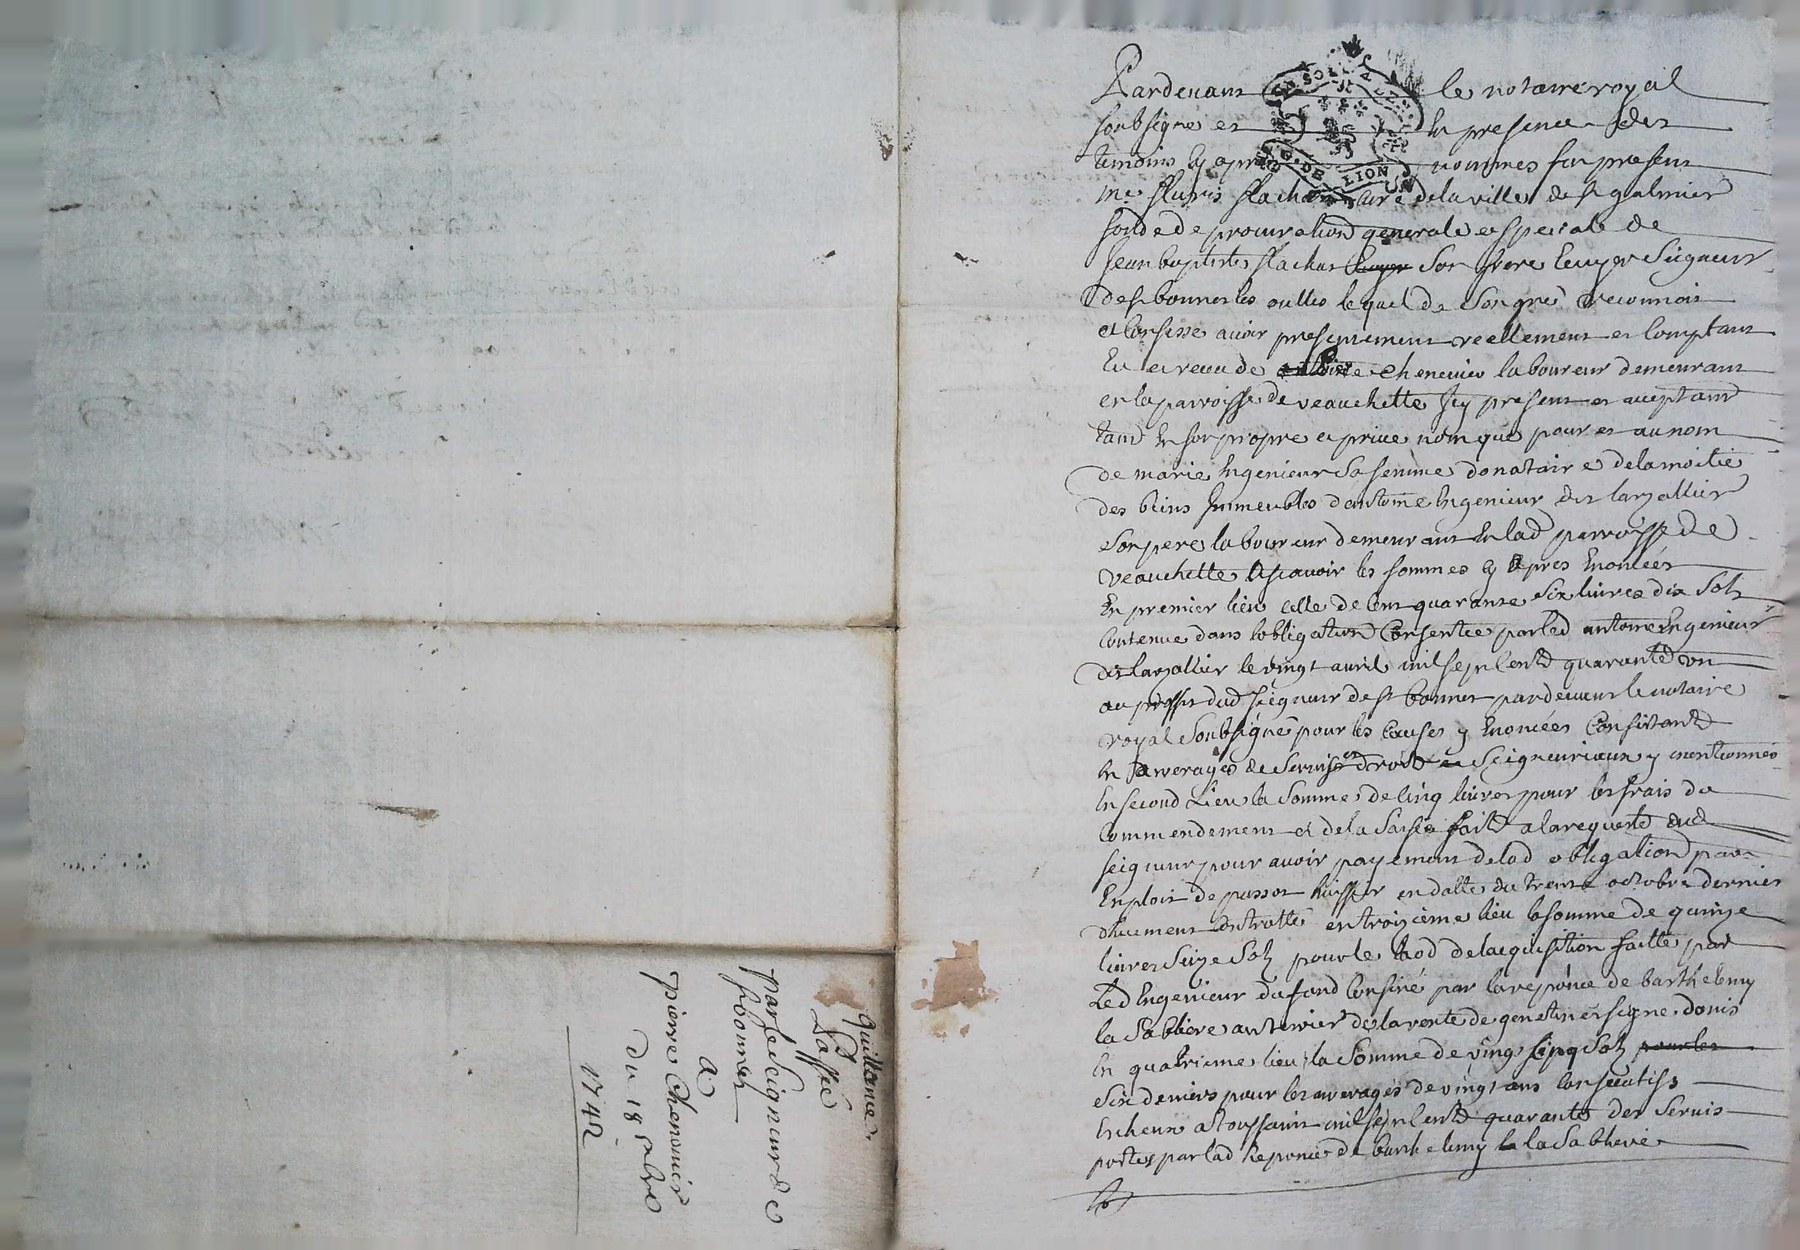 Pardevant le notaire royal
soubsigne et En presence des
temoins Cy apres nommes fut present
me fleuris flachat Curé de la ville de st galmier
fondé de procuration generale et speciale de
Jean baptiste flachat son frere Ecuyer Seigneur
de st bonnet les oulles lequel de son gré reconnoit
et Confesse avoir presentement reellement et Comptant
Eu et receu de pierre Chenevier laboureur demeurant
en la parroisse de veauchette Jcy present et aceptant
tant En son propre et privé nom que pour et au nom
de marie Ingenieur sa femme donataire de la moitié
des biens Immeubles d'antoine Ingenieur dit larjallier
son pere laboureur demeurant En lad parroisse de
veauchette Ascavoir les sommes cy apres Enoncées
En premier lieu celle de Cent quarante six livres dix sols
Contenue dans l'obligation Consentie par led antoine Ingenieur
dit larjallier le vingt avril mil sept Cents quarante un
au proffit dud seigneur de st bonnet pardevant le notaire
royal soubsigné pour les Causes y Enoncées Consistant
En arrerages de servis et droits Seigneuriaux y mentionnés
En second Lieu la somme de Cinq livres pour les frais du
Commendement et de la saisie faite a la requette dud
seigneur pour avoir payement de lad obligation par
Exploit de passot huissier en datte du trente octobre dernier
duement Controllé en troizieme lieu la somme de quinze
livres seize sols pour le Laod de l'acquisition faitte par
Led Ingenieur du fond Confiné par la reponce de barthelemy
la Sabliere au terrier de la rente de genetines signé donis
En quatrieme lieu la somme de vingt cinq sols
six deniers pour les arrerages de vingt ans Consecutifs
Echeus a toussaint mil sept Cents quarante des servis
portés par lad Reponce de barthelemy la Sabliere
quittance
Passée
par le seigneur de
st bonnet
a
pierre Chenevier
Du 18 xbre
1742
DE LION